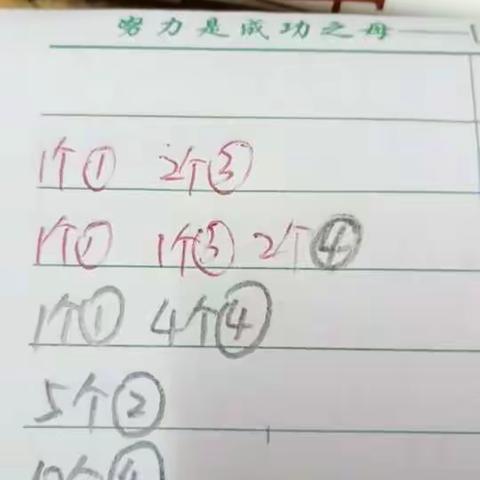 努力是成功之母
1个① 2个⑤
1个① 1个⑤ 2个④
1个① 4个④
5个②
10个④